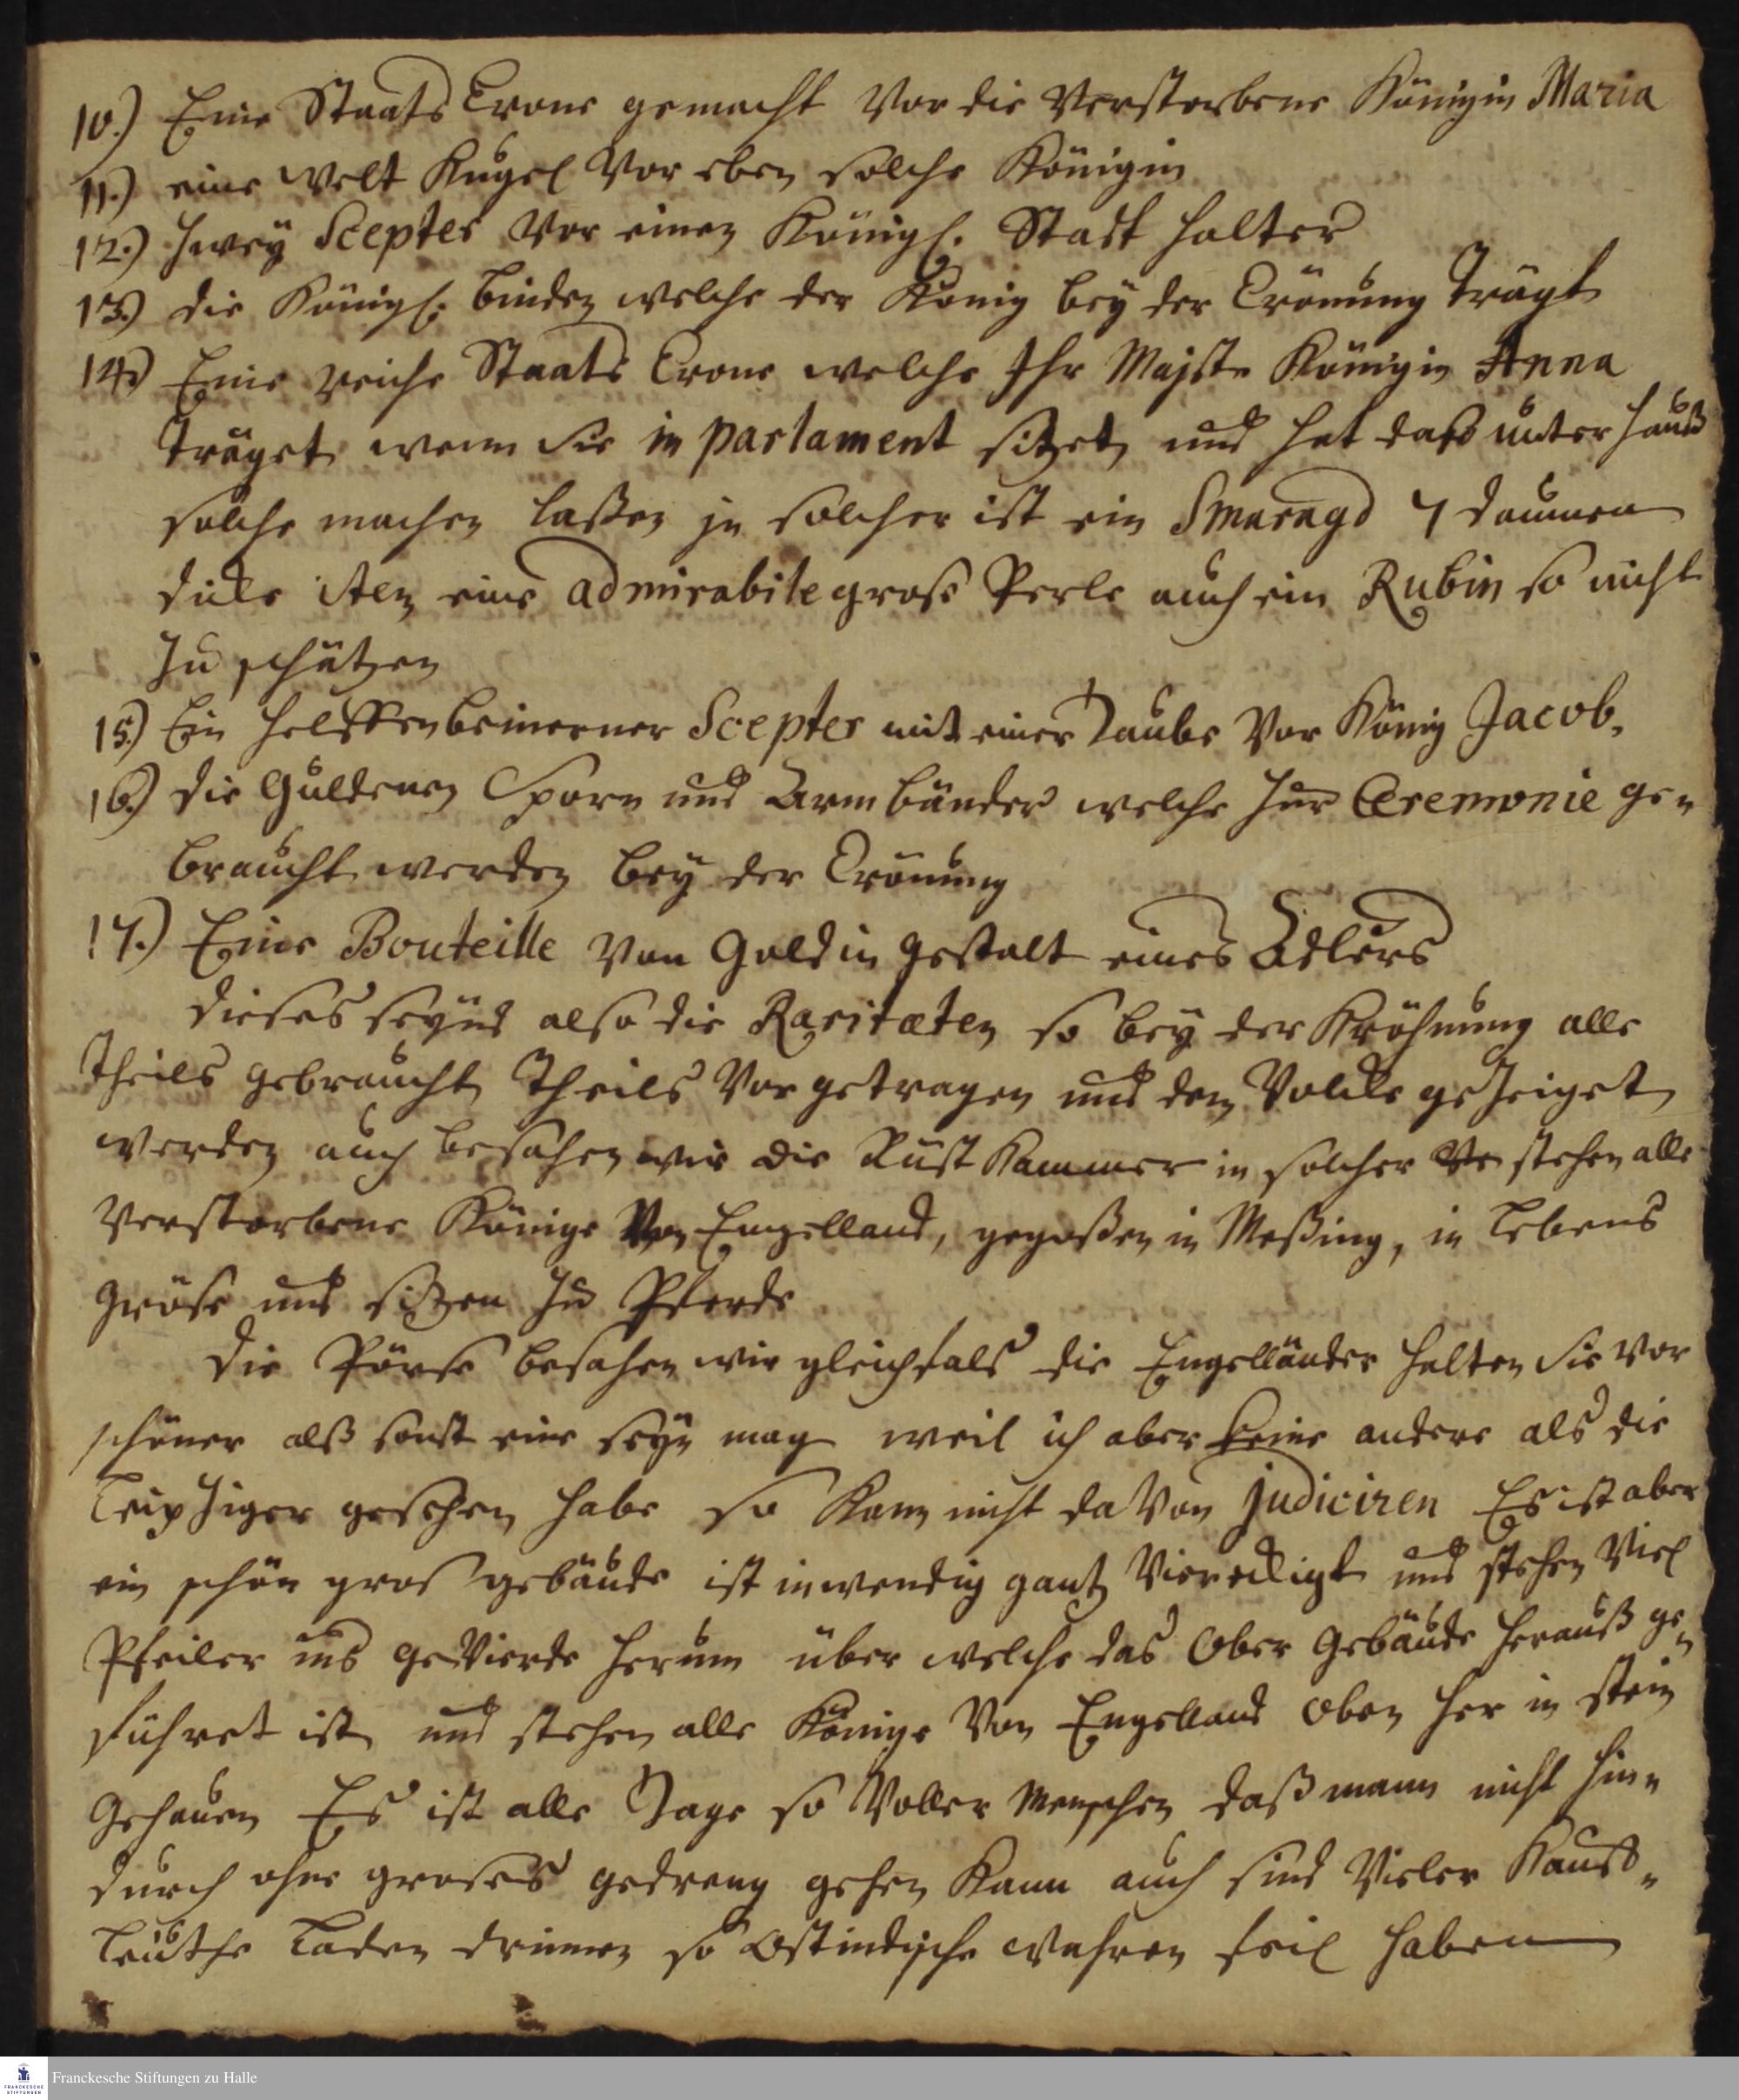 10.) Eine Staats Crone gemacht vor die verstorbene Königin Maria
11.) eine Welt Kugel vor eben solche Königin
12.) Zwey Scepter vor einen Königl. Statt halter
13.) die Königl. binden welche der König bey der Crönung trägt
14.) Eine reiche Staats Crone welche Ihr Majste Königin Anna
träget wenn Sie in parlament sitzet und hat daß unter hauß
solche machen laßen in solcher ist ein Smaragd 7 daumen
dicke item eine admirabile große Perle auch ein Rubin so nicht
zu schätzen
15.) Ein helffenbeinerner Scepter mit einer Taube vor König Jacob.
16.) die Guldenen Sporn und Armbänder welche zur Ceremonie ge-
braucht werden bey der Crönung
17.) Eine Bouteille von Gold in gestalt eines Adlers
dieses seynd also die Raritæten so bey der Kröhnung alle
theils gebraucht theils vor getragen und dem Volcke gezeiget
werden auch besahen wir die Rüst Kammer in solcher stehen alle
verstorbene Könige von Engelland, gegoßen in Meßing, in lebens
größe und sitzen zu Pferde
die Pörse besahen wir gleichfals die Engelländer halten sie vor
schöner alß sonst eine seyn mag weil ich aber keine andere als die
Leipziger gesehen habe so kann nicht da von judiciren Es ist aber
ein schön groß gebäude ist inwendig gantz viereckigt und stehen viel
Pfeiler ins gevierde herum über welche das Ober Gebäude herauß ge-
führet ist und stehen alle Könige von Engelland oben her in stein
Gehauen Es ist alle Tage so voller Menschen daß mann nicht hin-
durch ohne großes gedreng gehen kann auch sind vieler Kauff-
leuthe Laden drinnen so Ostindische wahren feil haben
Franckesche Stiftungen zu Halle